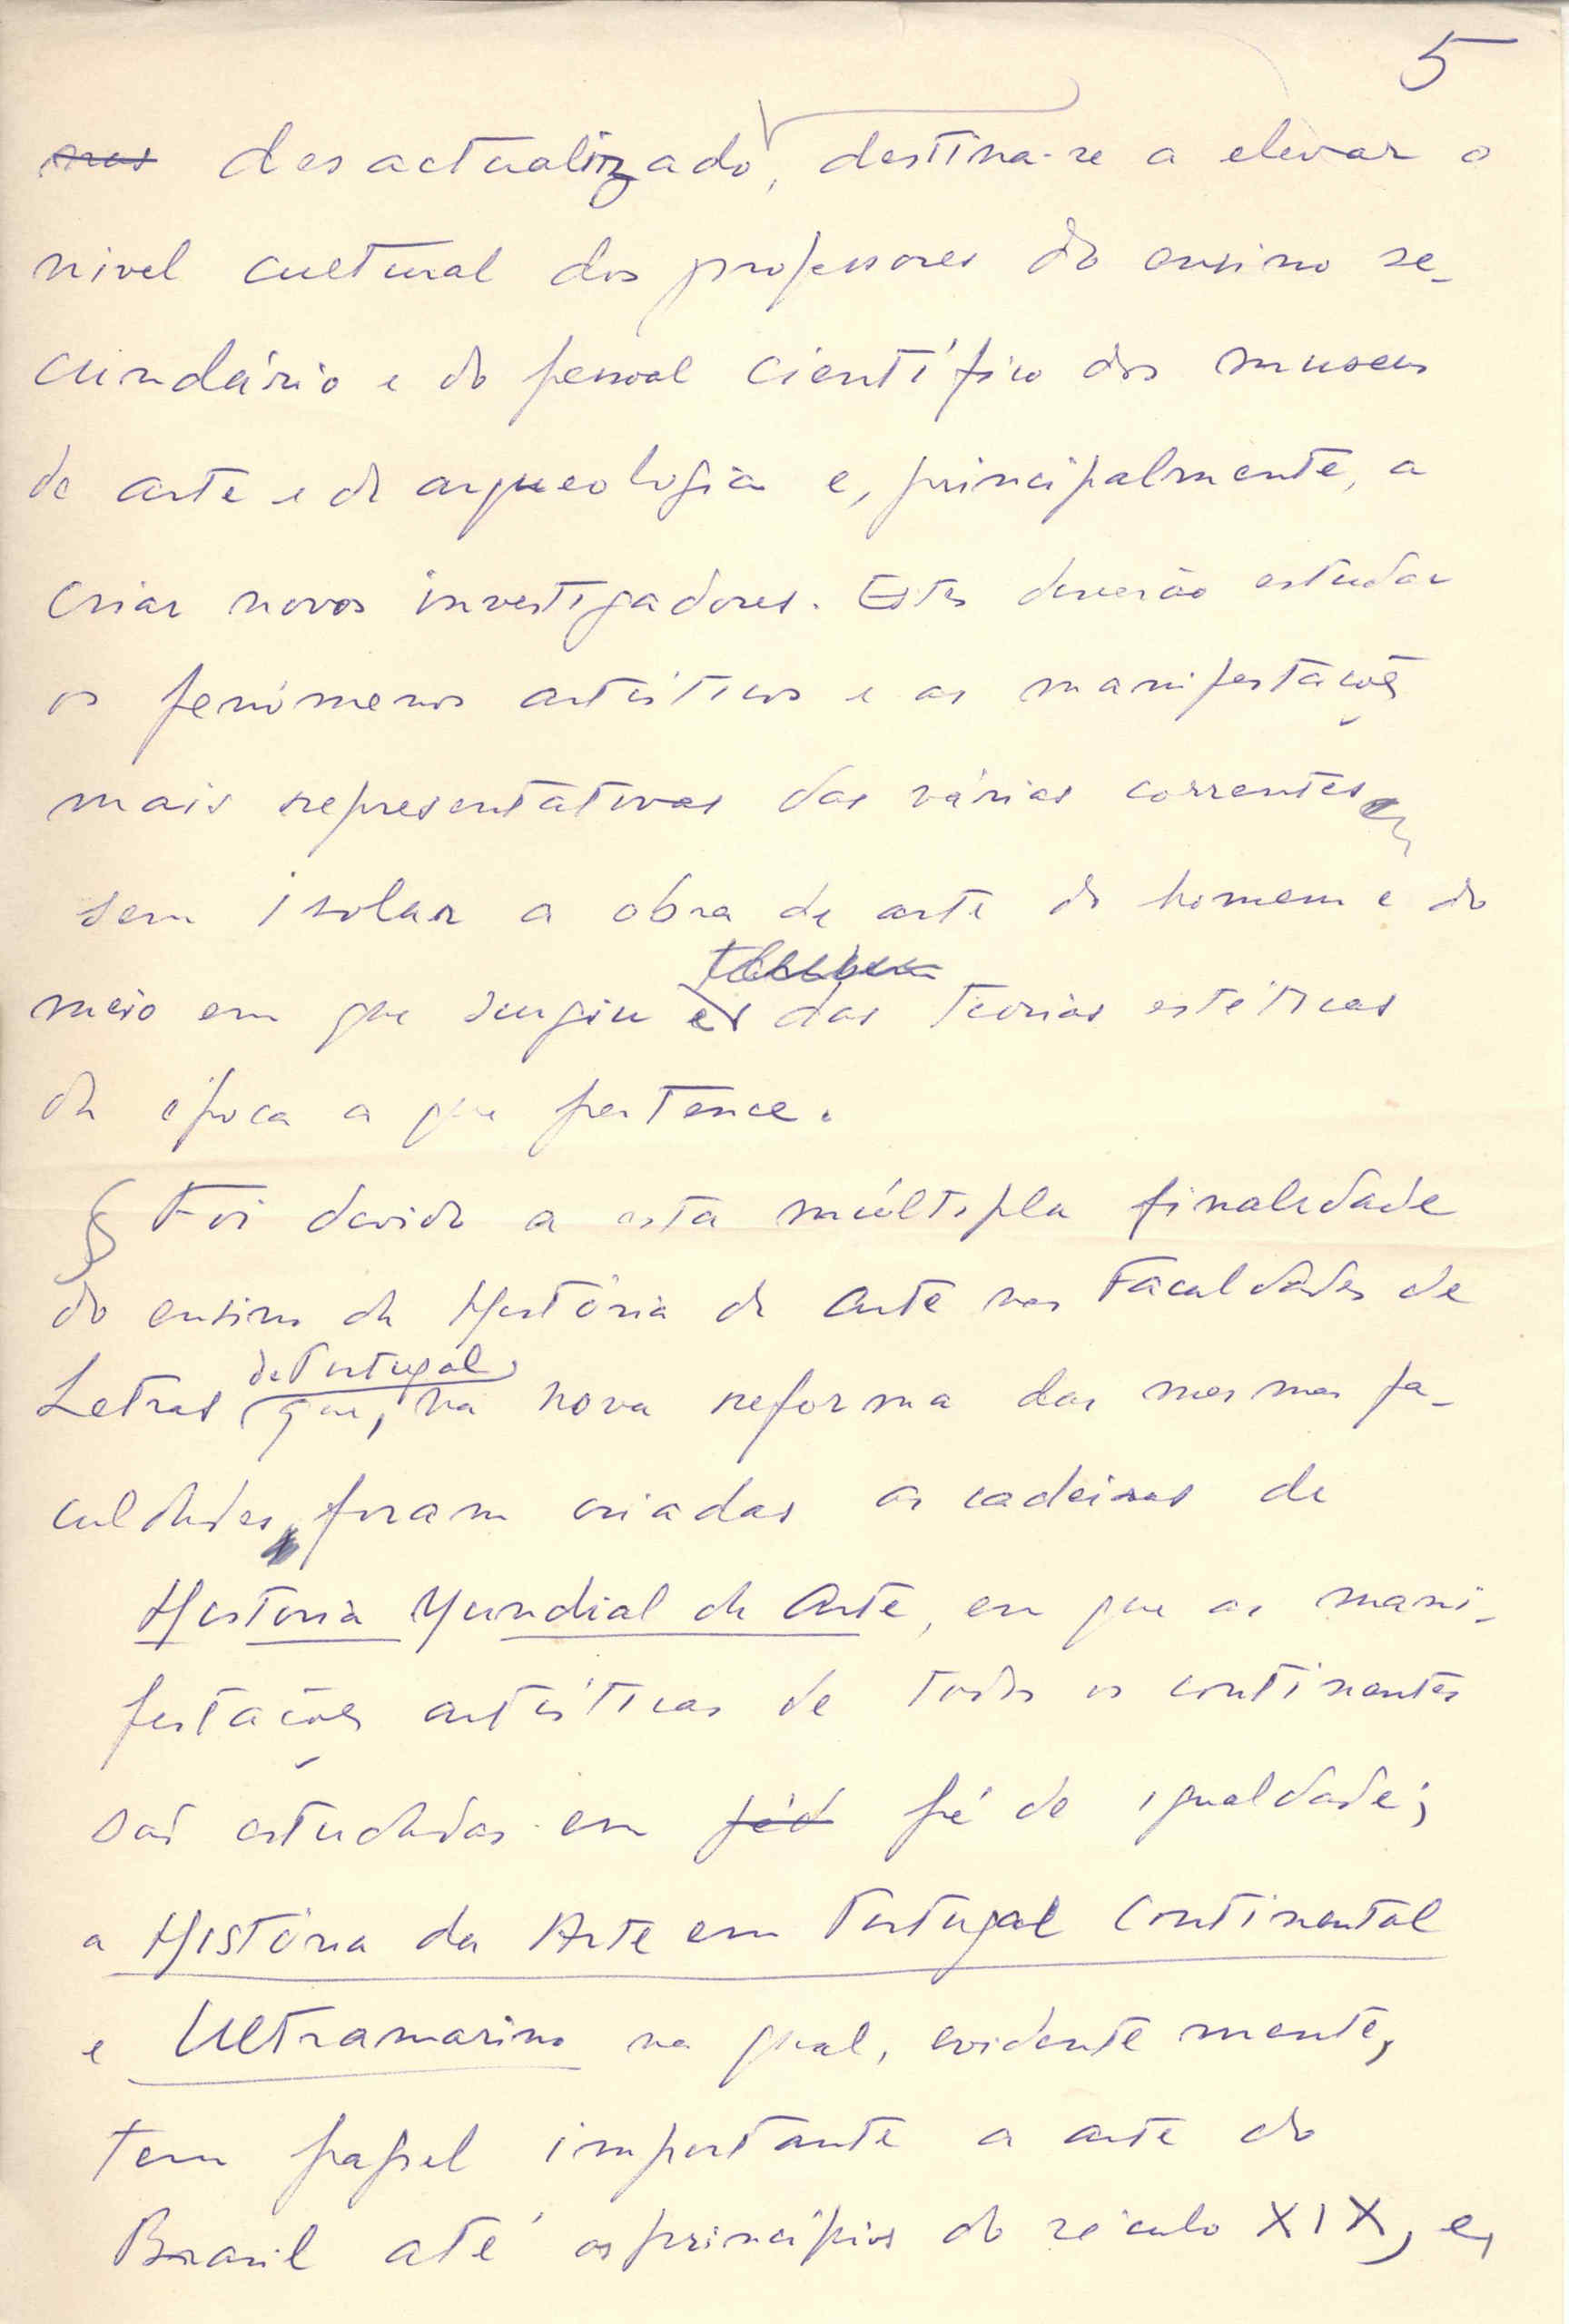 5
mas desactualizado, destina-se a elevar o
nivel cultural dos professores do ensino se-
cundário e do pessoal científico dos museus
de arte e de arqueologia e, principalmente, a
criar novos investigadores. Estes deverão estudar
os fenómenos artísticos e as manifestações
mais representativas das várias correntes
sem isolar a obra de arte do homem e do
meio em que surgiu e das teorias estéticas
da época a que pertence.
§ Foi devido a esta múltipla finalidade
do ensino da História da Arte nas Faculdades de
de Portugal
Letras que, na nova reforma das mesmas fa-
culdades, foram criadas as cadeiras de
História Mundial da Arte, em que as mani-
festações artísticas de todos os continentes
são estudadas em pé d pé de igualdade;
a História da Arte em Portugal Continental
e Ultramarino na qual, evidentemente,
tem papel importante a arte do
Brasil até os princípios do século XIX, e,